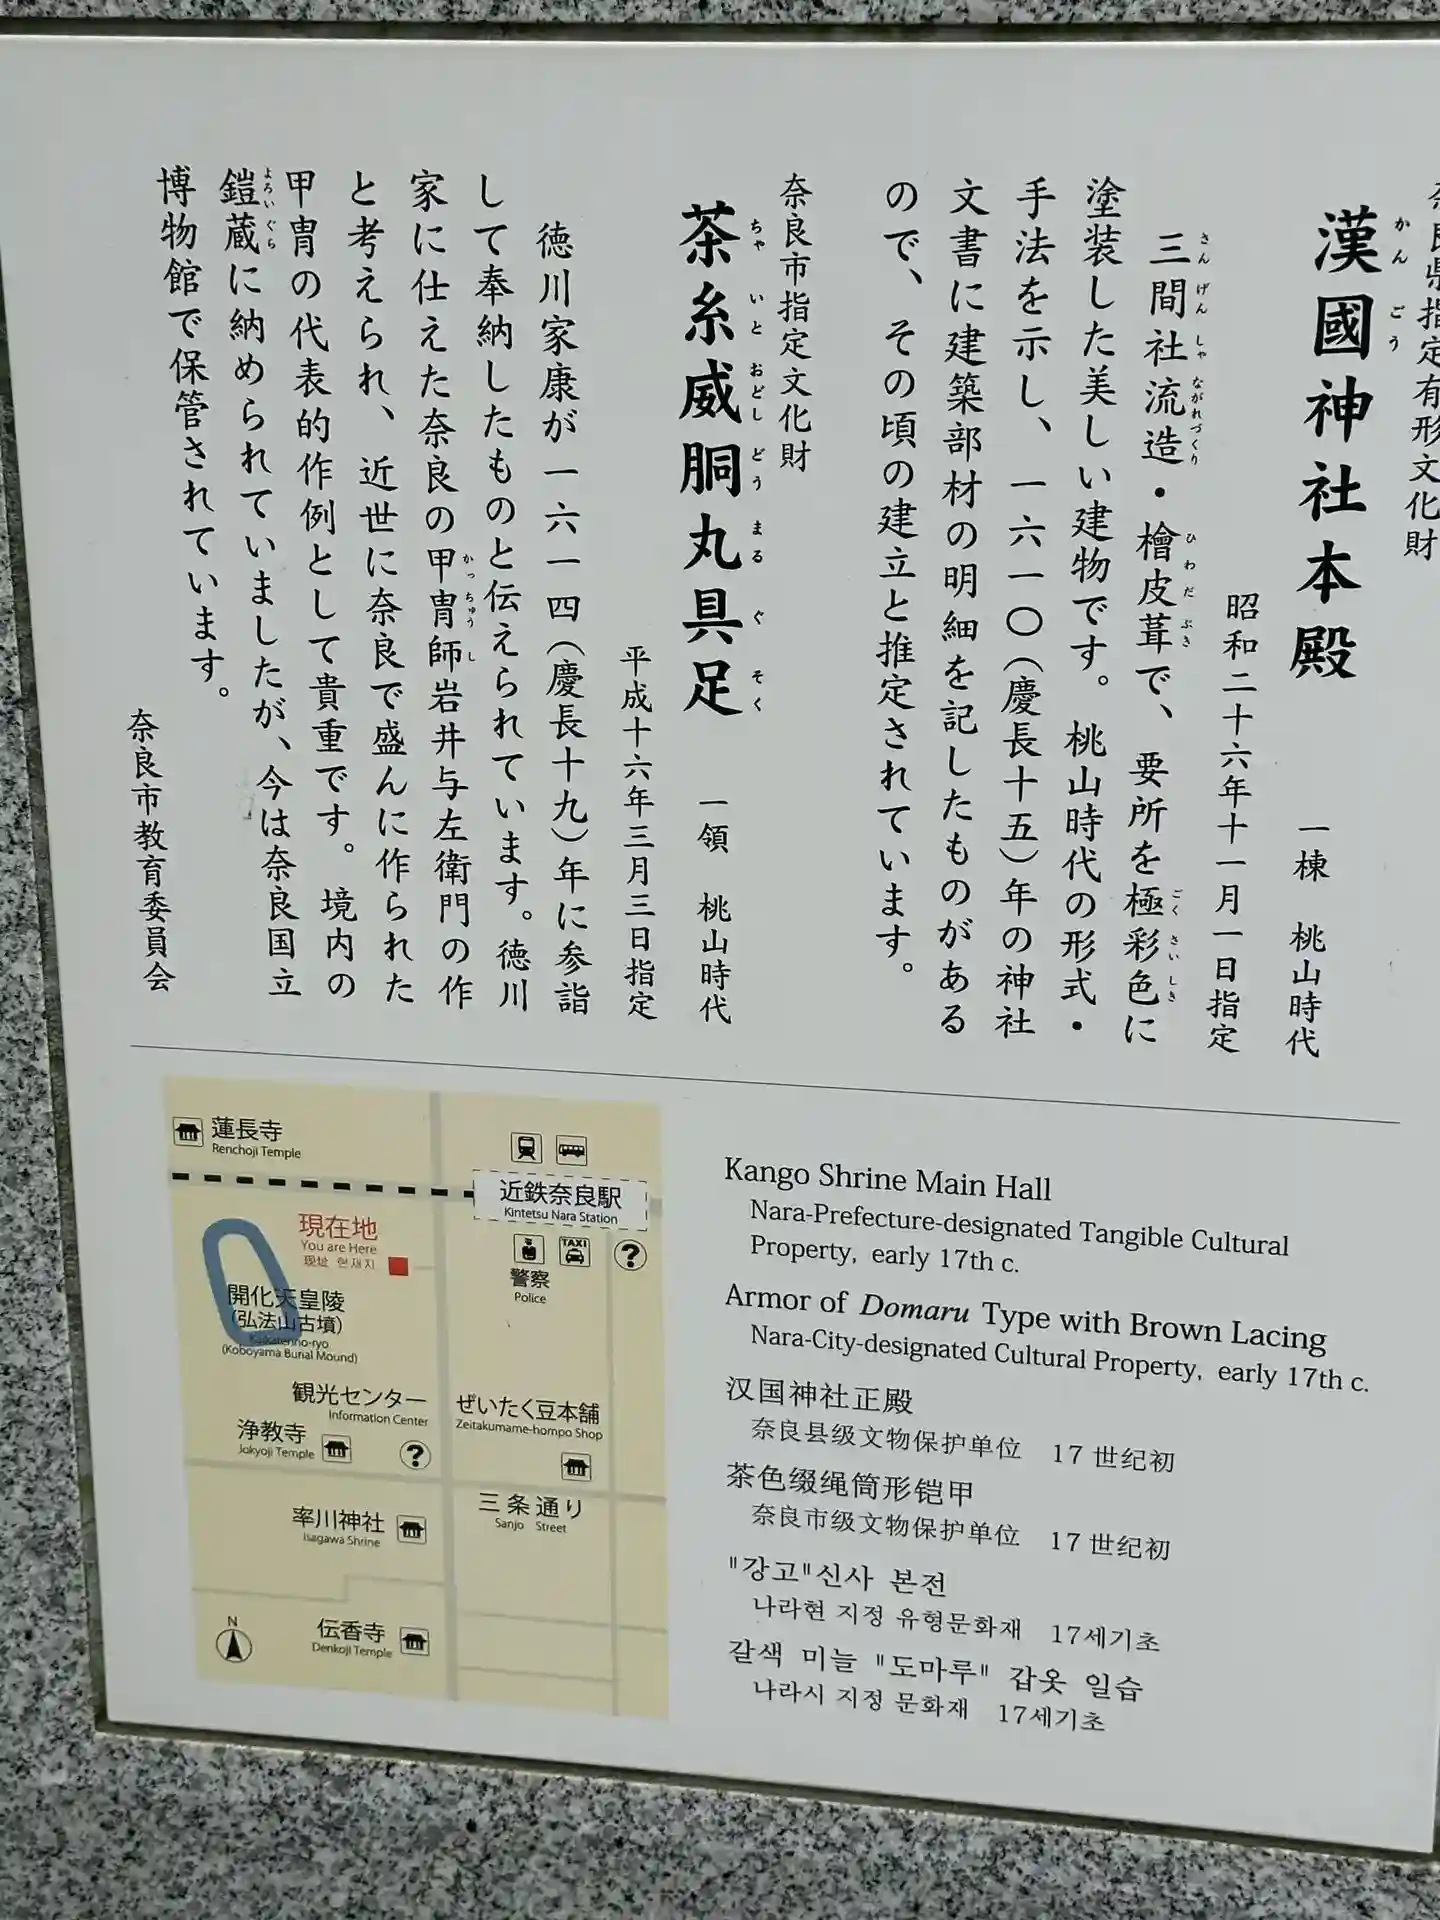 奈良県指定有形文化財
漢國神社本殿 一棟 桃山時代
かんごう
昭和二十六年十一月一日指定
三間社流造・檜皮葺で、要所を極彩色に
さんげんしゃながれづくり ひわだぶき ごくさいしき
塗装した美しい建物です。桃山時代の形式・
手法を示し、一六一〇(慶長十五)年の神社
文書に建築部材の明細を記したものがある
ので、その頃の建立と推定されています。
奈良市指定文化財
茶糸威胴丸具足 一領 桃山時代
ちゃいとおどしどうまるぐそく
平成十六年三月三日指定
徳川家康が一六一四(慶長十九)年に参詣
して奉納したものと伝えられています。徳川
家に仕えた奈良の甲冑師岩井与左衛門の作
かっちゅうし
と考えられ、近世に奈良で盛んに作られた
甲冑の代表的作例として貴重です。境内の
鎧蔵に納められていましたが、今は奈良国立
よろいぐら
博物館で保管されています。
奈良市教育委員会
蓮長寺
Renchoji Temple
近鉄奈良駅
Kintetsu Nara Station
現在地
You are Here
现址 현재지
TAXI
?
警察
Police
開化天皇陵
(弘法山古墳)
Kaikatenno-ryo
(Koboyama Burial Mound)
観光センター
Information Center
?
浄教寺
Jokyoji Temple
ぜいたく豆本舗
Zeitakumame-hompo Shop
三条通り
Sanjo Street
率川神社
Isagawa Shrine
伝香寺
Denkoji Temple
N
Kango Shrine Main Hall
Nara-Prefecture-designated Tangible Cultural
Property, early 17th c.
Armor of Domaru Type with Brown Lacing
Nara-City-designated Cultural Property, early 17th c.
汉国神社正殿
奈良县级文物保护单位 17 世纪初
茶色缀绳筒形铠甲
奈良市级文物保护单位 17 世纪初
"강고"신사 본전
나라현 지정 유형문화재 17세기초
갈색 미늘 "도마루" 갑옷 일습
나라시 지정 문화재 17세기초